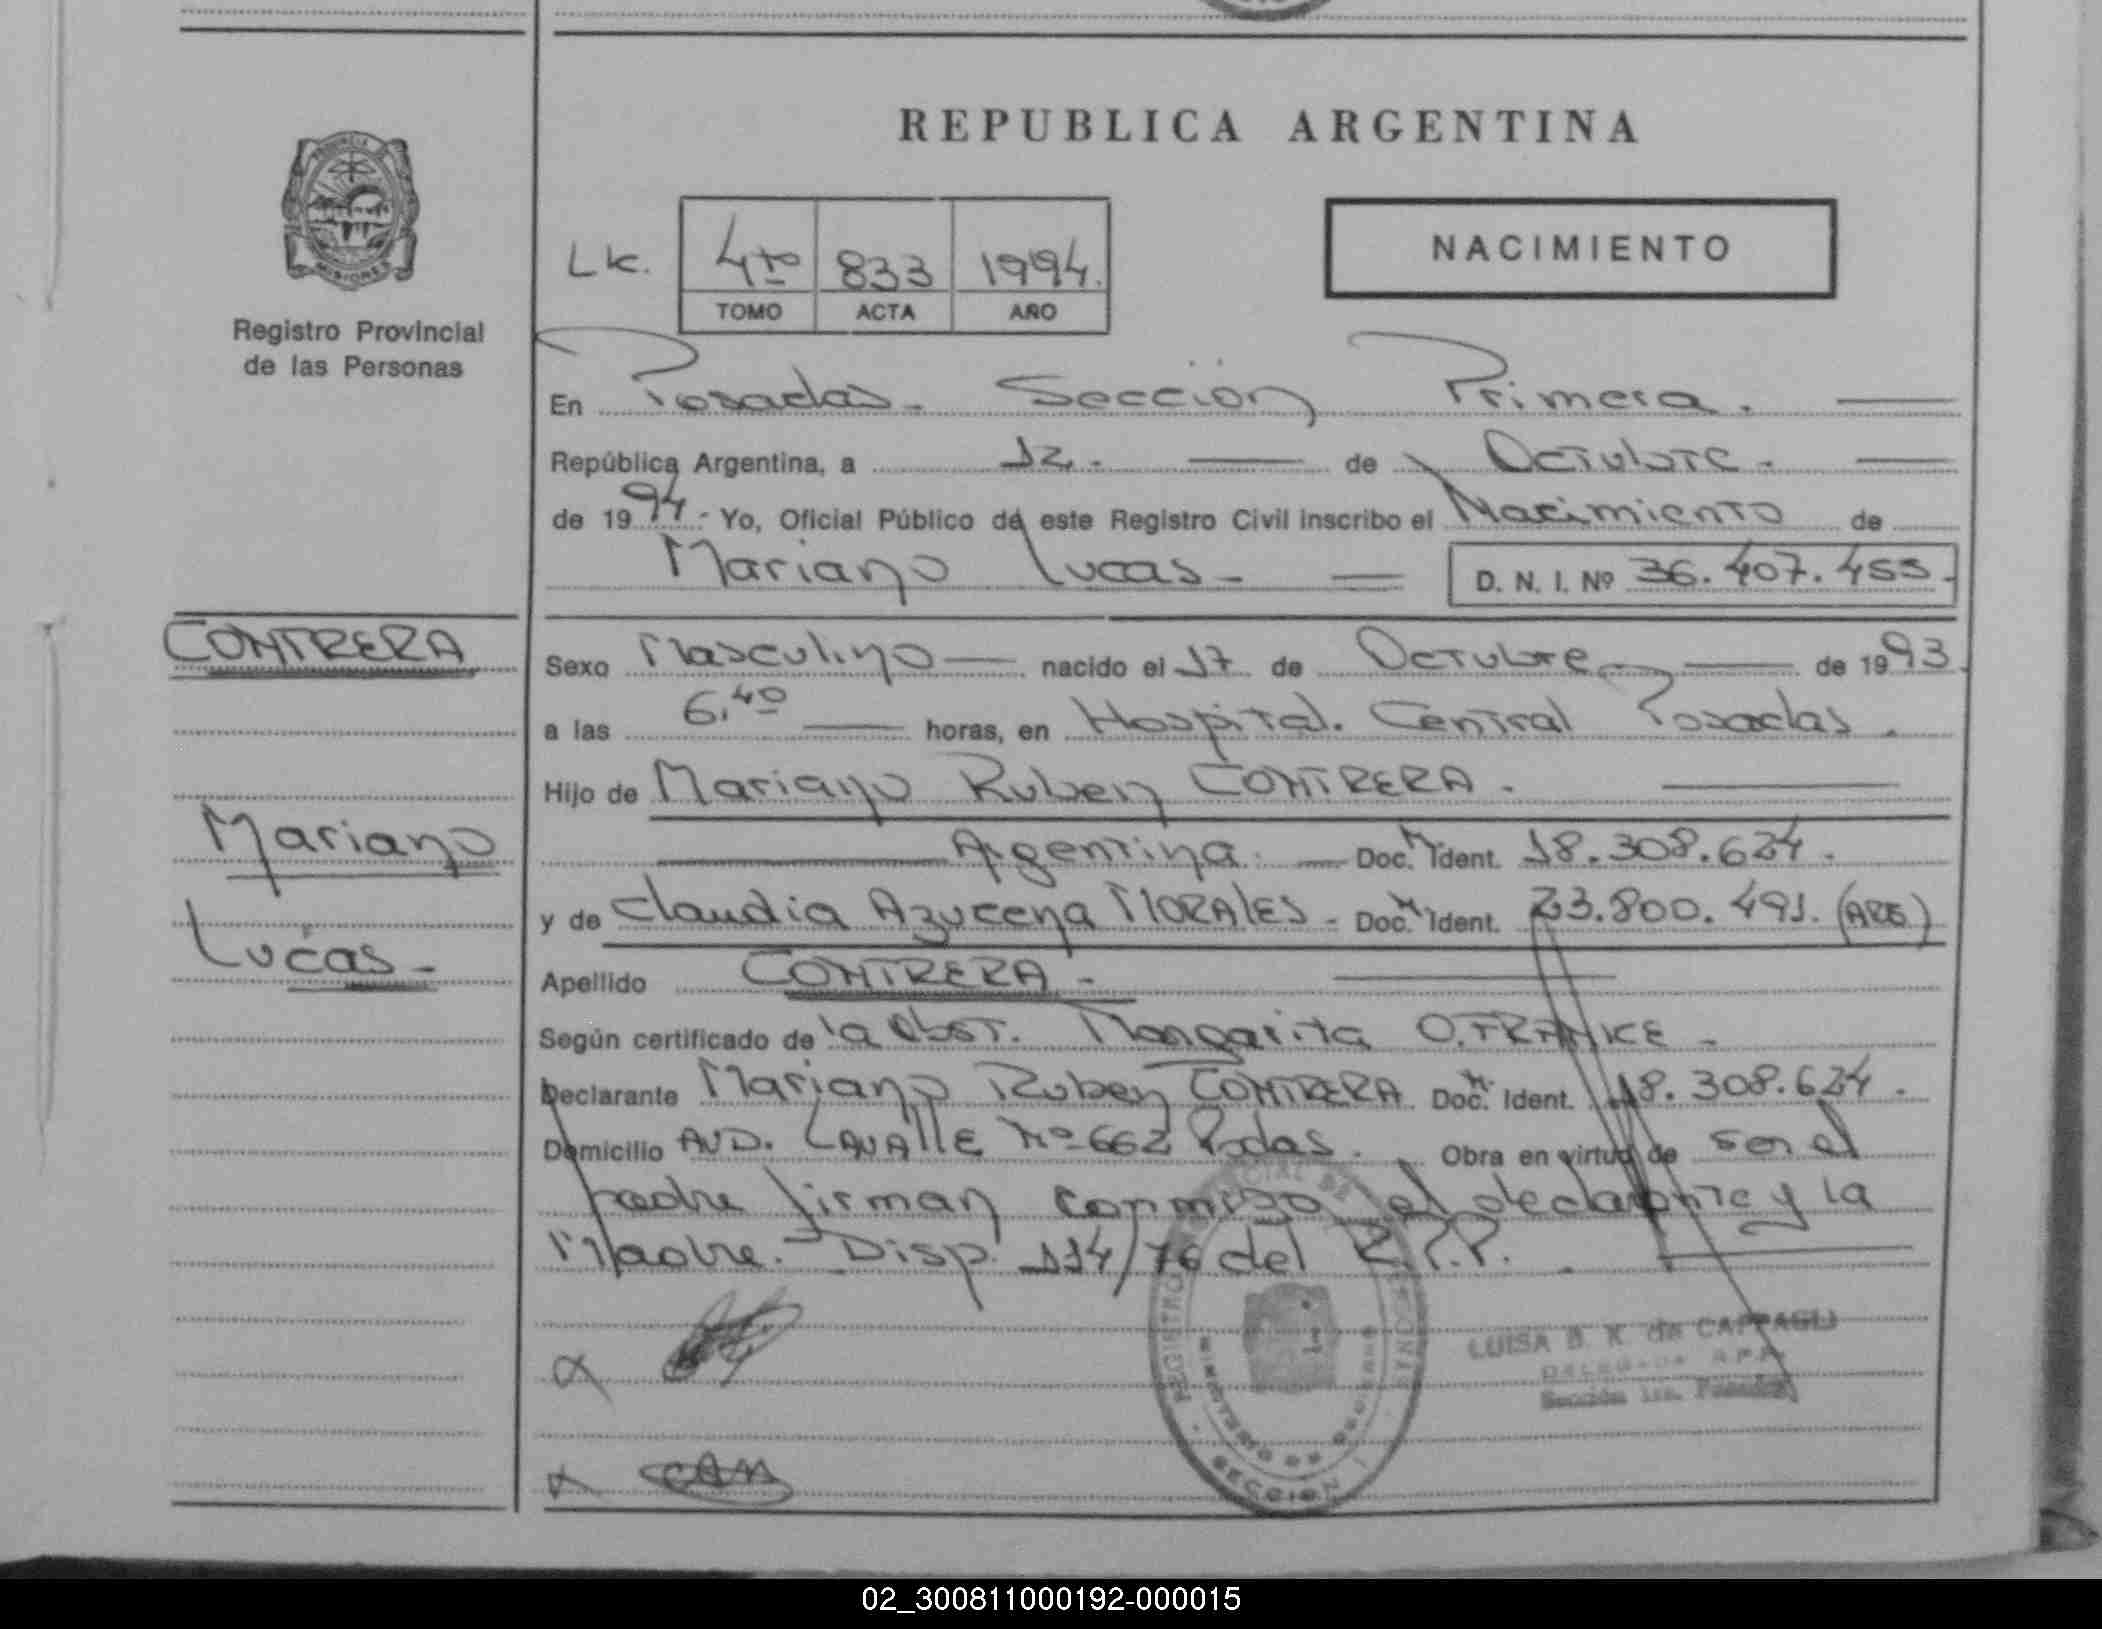 REPUBLICA ARGENTINA
PROVINCIA
MISIONES
Registro Provincial
de las Personas
4to 833 1994.
TOMO ACTA AÑO
NACIMIENTO
En Posadas. Sección Primera.
República Argentina, a 12. de Octubre.
de 1994.- Yo, Oficial Público de este Registro Civil inscribo el Nacimiento de
Mariano Lucas - D. N. I. Nº 36.407.455.
CONTRERA
Mariano
Lucas -
Sexo Masculino nacido el 17 de Octubre de 1993.
a las 6,40 horas, en Hospital. Central Posadas.
Hijo de Mariano Ruben CONTRERA.
Argentina. Doc. Ident. 18.308.624.
y de Claudia Azucena MORALES - Doc. Ident. 23.800.491. (ARG)
Apellido CONTRERA -
Según certificado de la Obst. Margarita O. FRANKE -
Declarante Mariano Ruben CONTRERA Doc. Ident. 18.308.624.
Domicilio AVD. LAVALLE Nº 662 Pdas. Obra en virtud de ser el
padre firman conmigo el declarante y la
Madre. Disp. 114/76 del R.P.P.
LUISA B. K. de CAPPAGLI
DELEGADA R.P.P.
Sección 1ra. Posadas
02_300811000192-000015